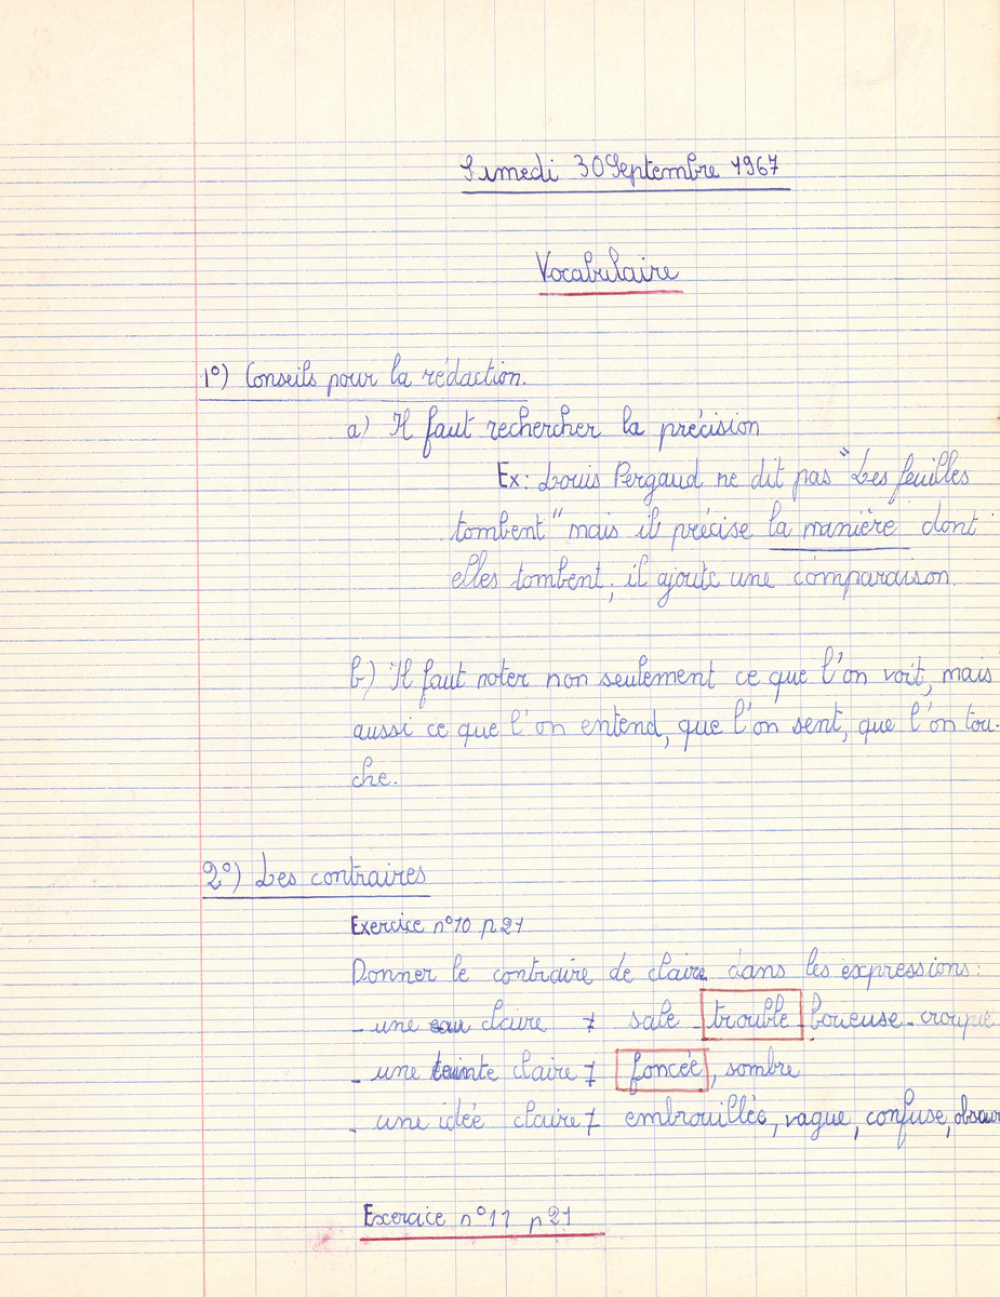 Samedi 30 Septembre 1967
Vocabulaire
1°) Conseils pour la rédaction.
a) Il faut rechercher la précision
Ex: Louis Pergaud ne dit pas "Les feuilles
tombent" mais il précise la manière dont
elles tombent; il ajoute une comparaison.
b) Il faut noter non seulement ce que l'on voit, mais
aussi ce que l'on entend, que l'on sent, que l'on tou-
che.
2°) Les contraires
Exercice n°10 p 21
Donner le contraire de claire dans les expressions:
- une eau claire ≠ sale - trouble boueuse - croupie
- une teinte claire ≠ foncée, sombre
- une idée claire ≠ embrouillée, vague, confuse, obscur
Exercice n°11 p 21